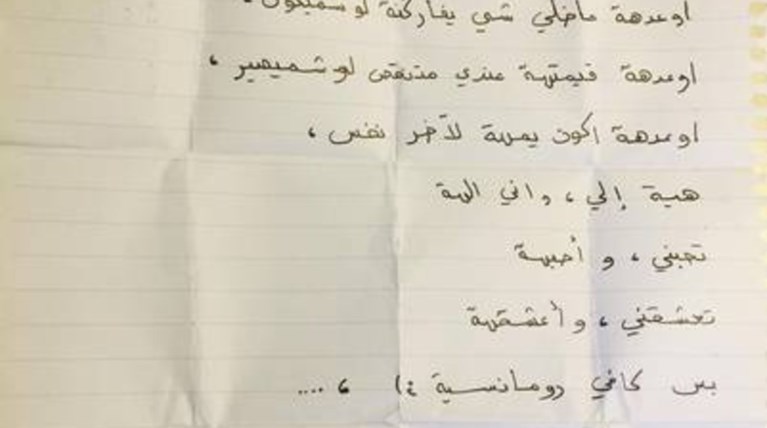 اوعدهة ماخلي شي يفاركنة لو شميكون ،
اوعدهة قيمتهة عندي متنقص لو شميصير ،
اوعدهة اكون يمهة لآخر نفس ،
هية إلي ، واني الهة
تحبني ، و أحبهة
تعشقني ، و أعشقهة
بس كافي رومانسية :) ، ....